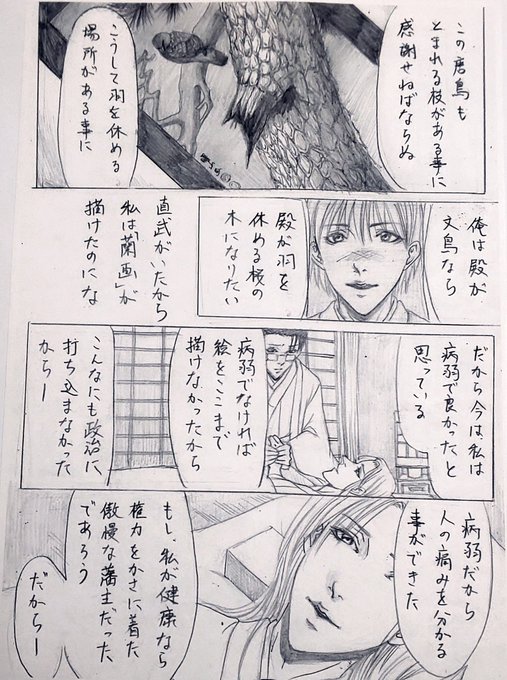 この唐鳥も
とまれる枝がある事に
感謝せねばならぬ
こうして羽を休める
場所がある事に
俺は殿が
文鳥なら
殿が羽を
休める桜の
木になりたい
直武がいたから
私は「蘭画」が
描けたのにな
だから今は、私は
病弱で良かったと
思っている
病弱でなければ
絵をここまで
描けなかったから
こんなにも政治に、
打ち込まなかった
からー
病弱だから
人の痛みを分かる
事ができた
もし、私が健康なら
権力をかさに着た
傲慢な藩主だった
であろう
だからー